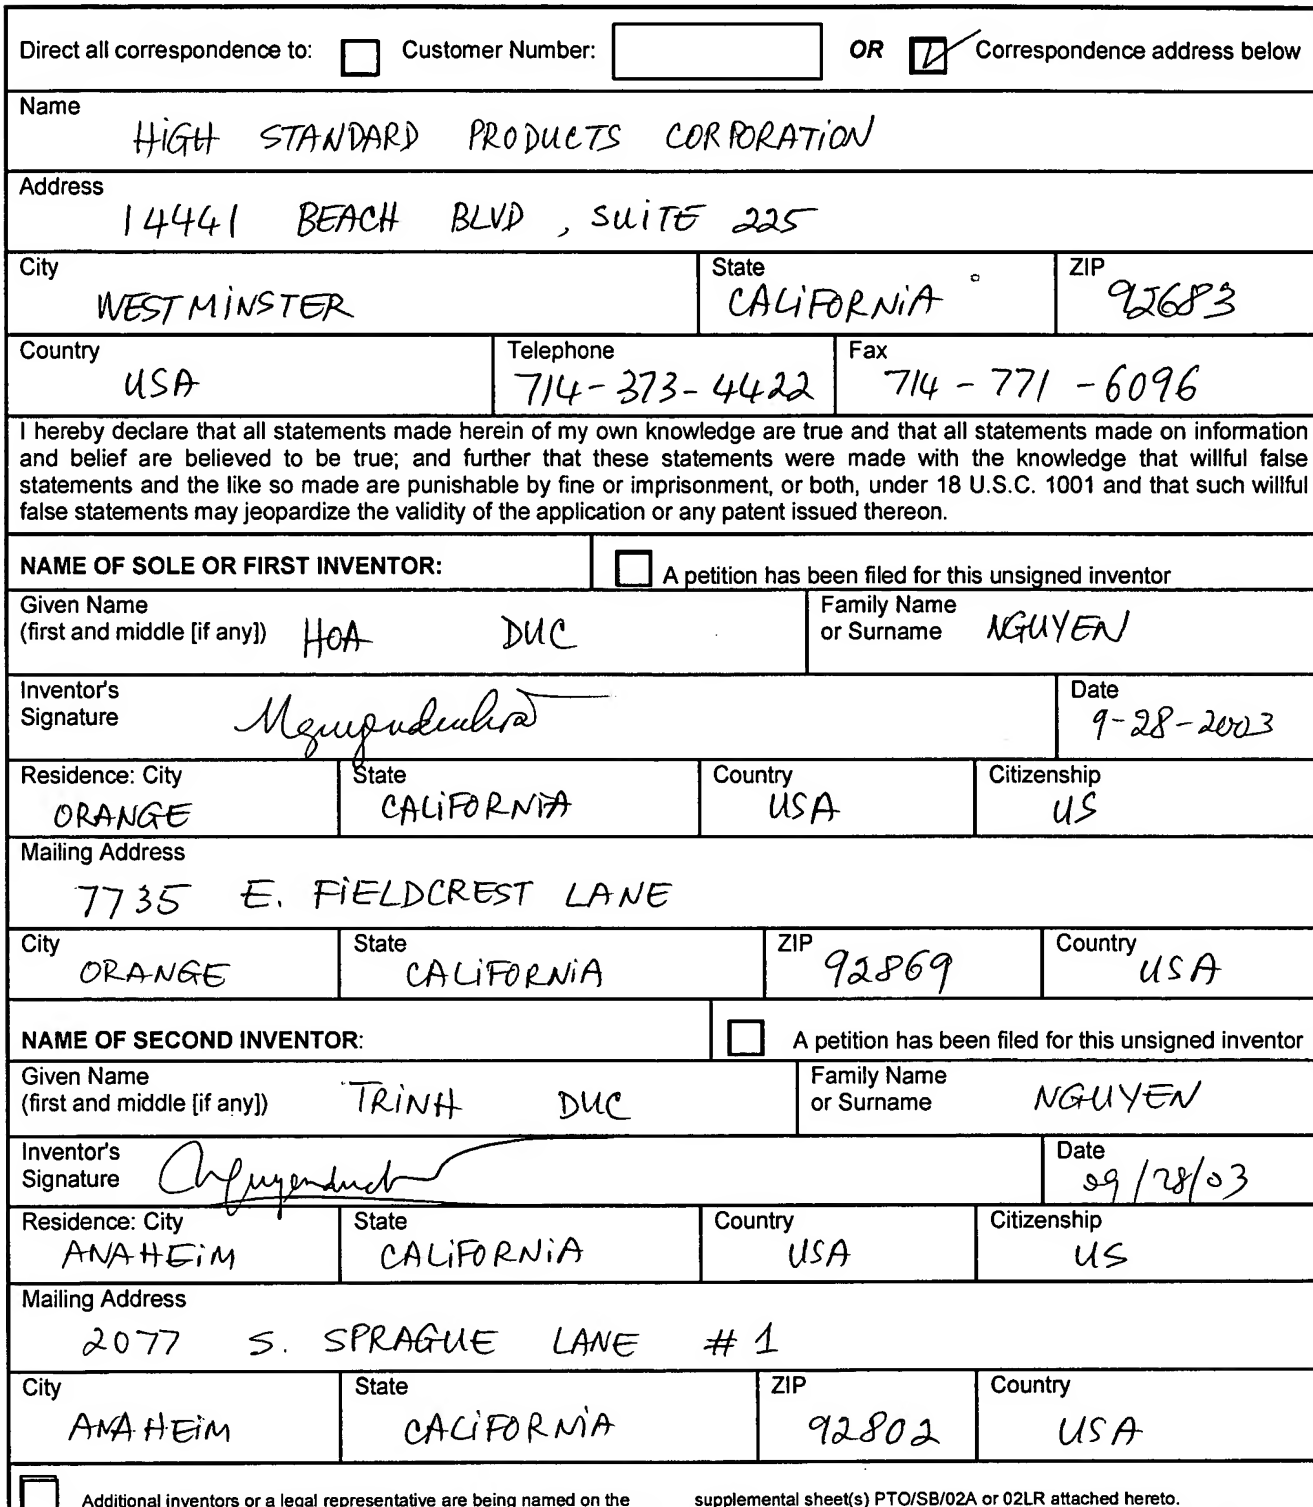 Direct all correspondence to: Customer Number: OR Correspondence address below
Name
HiGH STANDARD PRODUCTS CORPORATiON
Address
14441 BEACH BLVD , SUiTE 225
City State ZIP
WESTMiNSTER CALiFORNiA 92683
Country Telephone Fax
USA 714-373-4422 714-771-6096
I hereby declare that all statements made herein of my own knowledge are true and that all statements made on information
and belief are believed to be true; and further that these statements were made with the knowledge that willful false
statements and the like so made are punishable by fine or imprisonment, or both, under 18 U.S.C. 1001 and that such willful
false statements may jeopardize the validity of the application or any patent issued thereon.
NAME OF SOLE OR FIRST INVENTOR: A petition has been filed for this unsigned inventor
Given Name Family Name
(first and middle [if any]) HOA DUC or Surname NGUYEN
Inventor's Date
Signature Nguyenduchoa 9-28-2003
Residence: City State Country Citizenship
ORANGE CALiFORNiA USA US
Mailing Address
7735 E. FiELDCREST LANE
City State ZIP Country
ORANGE CALiFORNiA 92869 USA
NAME OF SECOND INVENTOR: A petition has been filed for this unsigned inventor
Given Name Family Name
(first and middle [if any]) TRiNH DUC or Surname NGUYEN
Inventor's Date
Signature 09/28/03
Residence: City State Country Citizenship
ANAHEiM CALiFORNiA USA US
Mailing Address
2077 S. SPRAGUE LANE #1
City State ZIP Country
ANAHEiM CALiFORNiA 92802 USA
Additional inventors or a legal representative are being named on the supplemental sheet(s) PTO/SB/02A or 02LR attached hereto.